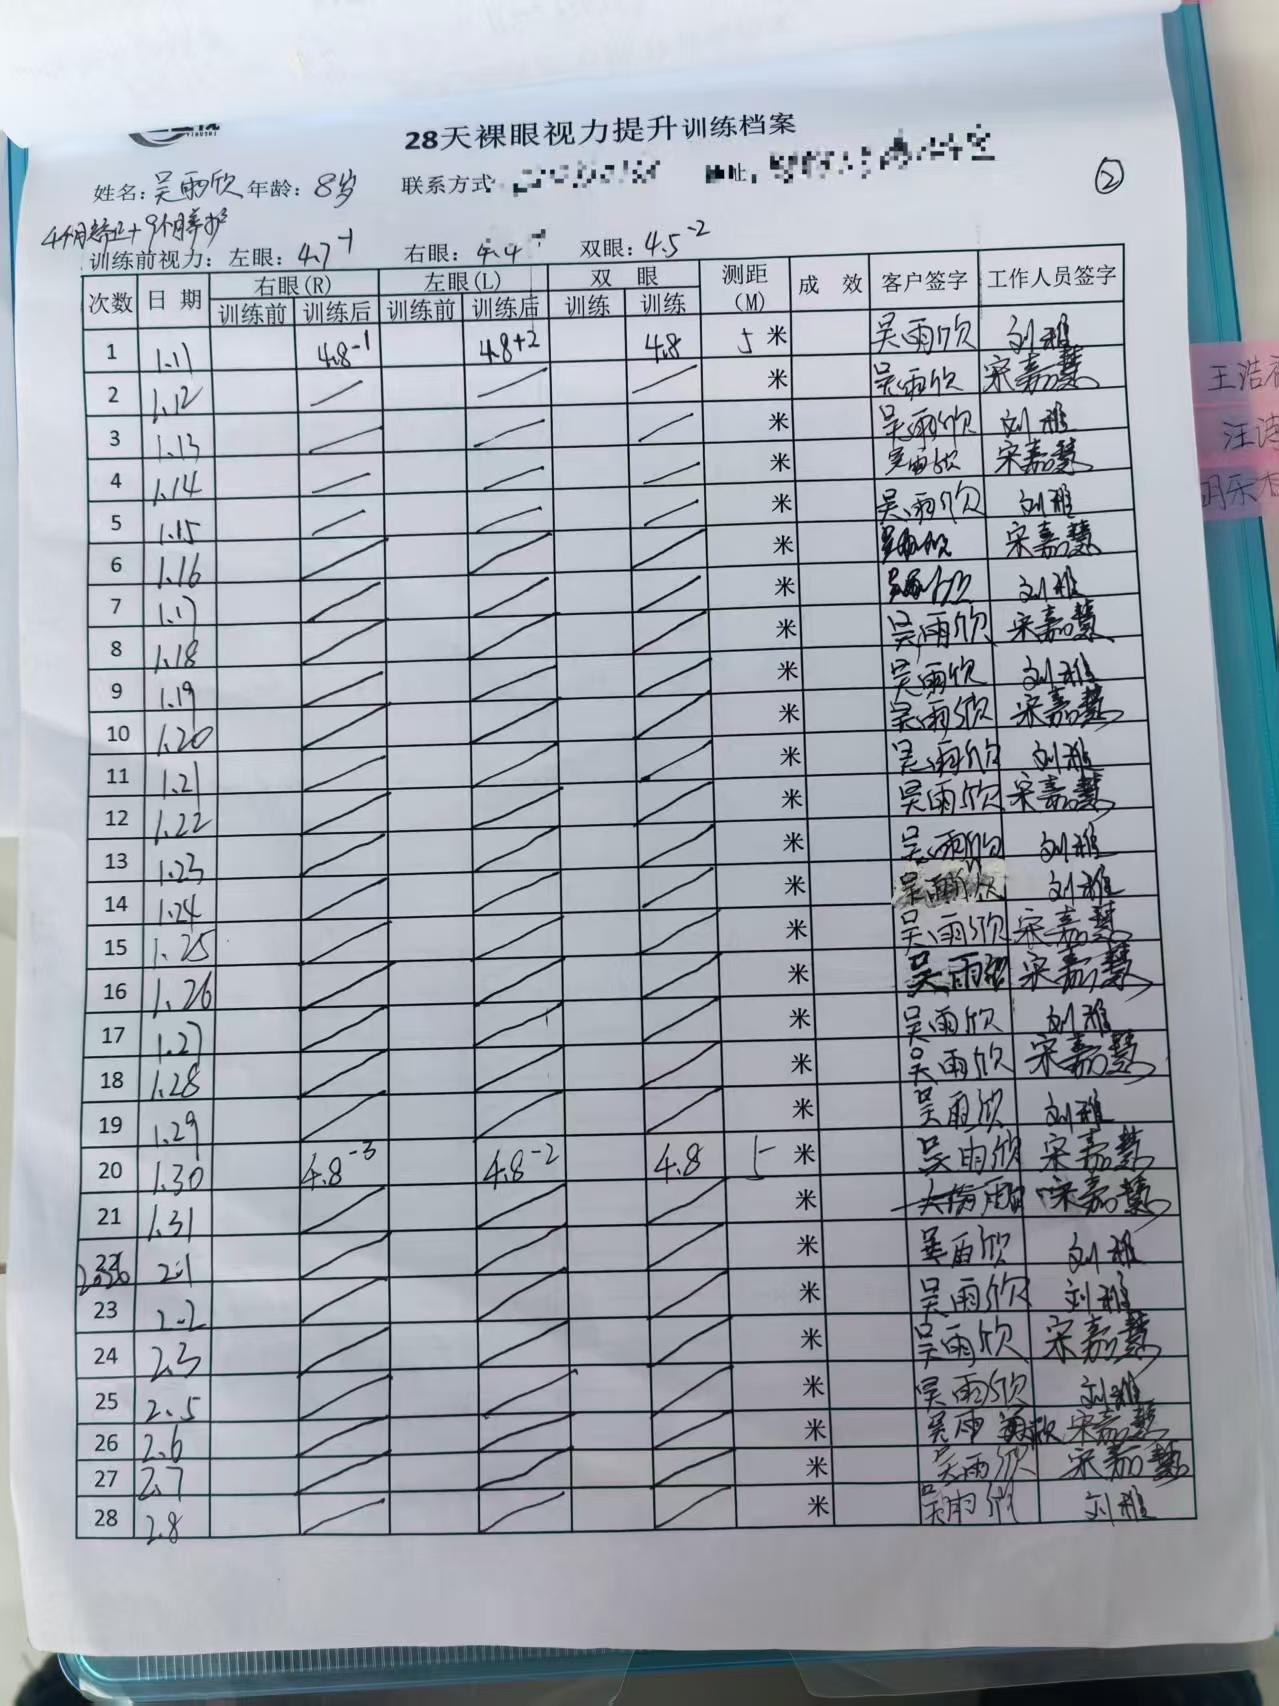 YIHUSHI
28天裸眼视力提升训练档案
姓名:吴雨欣 年龄:8岁 联系方式
②
4个月矫正+9个月养护
训练前视力: 左眼:4.7⁻¹ 右眼:4.4⁻¹ 双眼:4.5⁻²
次数 日期 右眼(R) 左眼(L) 双眼 测距(M) 成效 客户签字 工作人员签字
训练前 训练后 训练前 训练后 训练 训练
1 1.11 4.8⁻¹ 4.8⁺² 4.8 5 米 吴雨欣 刘雅
2 1.12 米 吴雨欣 宋嘉慧
3 1.13 米 吴雨欣 刘雅
4 1.14 米 吴雨欣 宋嘉慧
5 1.15 米 吴雨欣 刘雅
6 1.16 米 吴雨欣 宋嘉慧
7 1.17 米 吴雨欣 刘雅
8 1.18 米 吴雨欣 宋嘉慧
9 1.19 米 吴雨欣 刘雅
10 1.20 米 吴雨欣 宋嘉慧
11 1.21 米 吴雨欣 刘雅
12 1.22 米 吴雨欣 宋嘉慧
13 1.23 米 吴雨欣 刘雅
14 1.24 米 吴雨欣 刘雅
15 1.25 米 吴雨欣 宋嘉慧
16 1.26 米 吴雨欣 宋嘉慧
17 1.27 米 吴雨欣 刘雅
18 1.28 米 吴雨欣 宋嘉慧
19 1.29 米 吴雨欣 刘雅
20 1.30 4.8⁻³ 4.8⁻² 4.8 5 米 吴雨欣 宋嘉慧
21 1.31 米 宋嘉慧
22 2.1 米 吴雨欣 刘雅
23 2.2 米 吴雨欣 刘雅
24 2.3 米 吴雨欣 宋嘉慧
25 2.5 米 吴雨欣 刘雅
26 2.6 米 吴雨 宋嘉慧
27 2.7 米 吴雨欣 宋嘉慧
28 2.8 米 吴雨欣 刘雅
王浩
汪